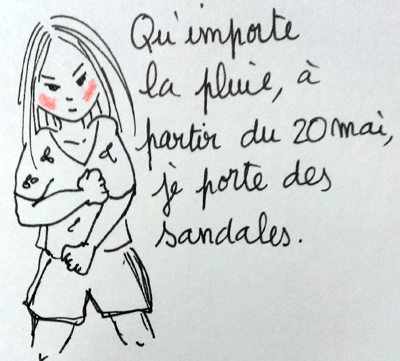 Qu'importe
la pluie, à
partir du 20 mai,
je porte des
sandales.